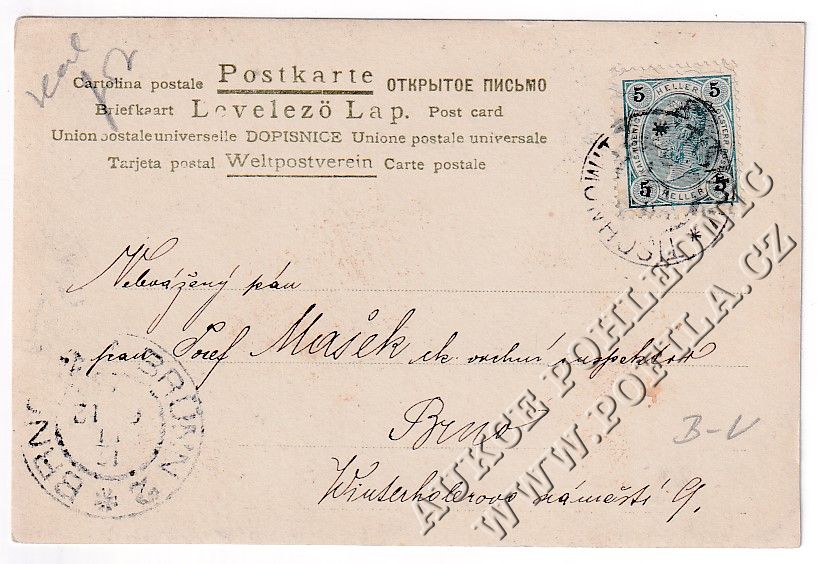 Cartolina postale Postkarte ОТКРЫТОЕ ПИСЬМО
Briefkaart Levelezö Lap. Post card
Union postale universelle DOPISNICE Unione postale universale
Tarjeta postal Weltpostverein Carte postale
5 HELLER 5
5 HELLER 5
TISCHNOWITZ
Velevážený pán
pan Josef Mašek ck. vrchní inspektor
Brno
Winterholerovo náměstí 9.
BRÜNN 2 * BRNO
B-V
AUKCE POHLEDNIC
WWW.POFILA.CZ